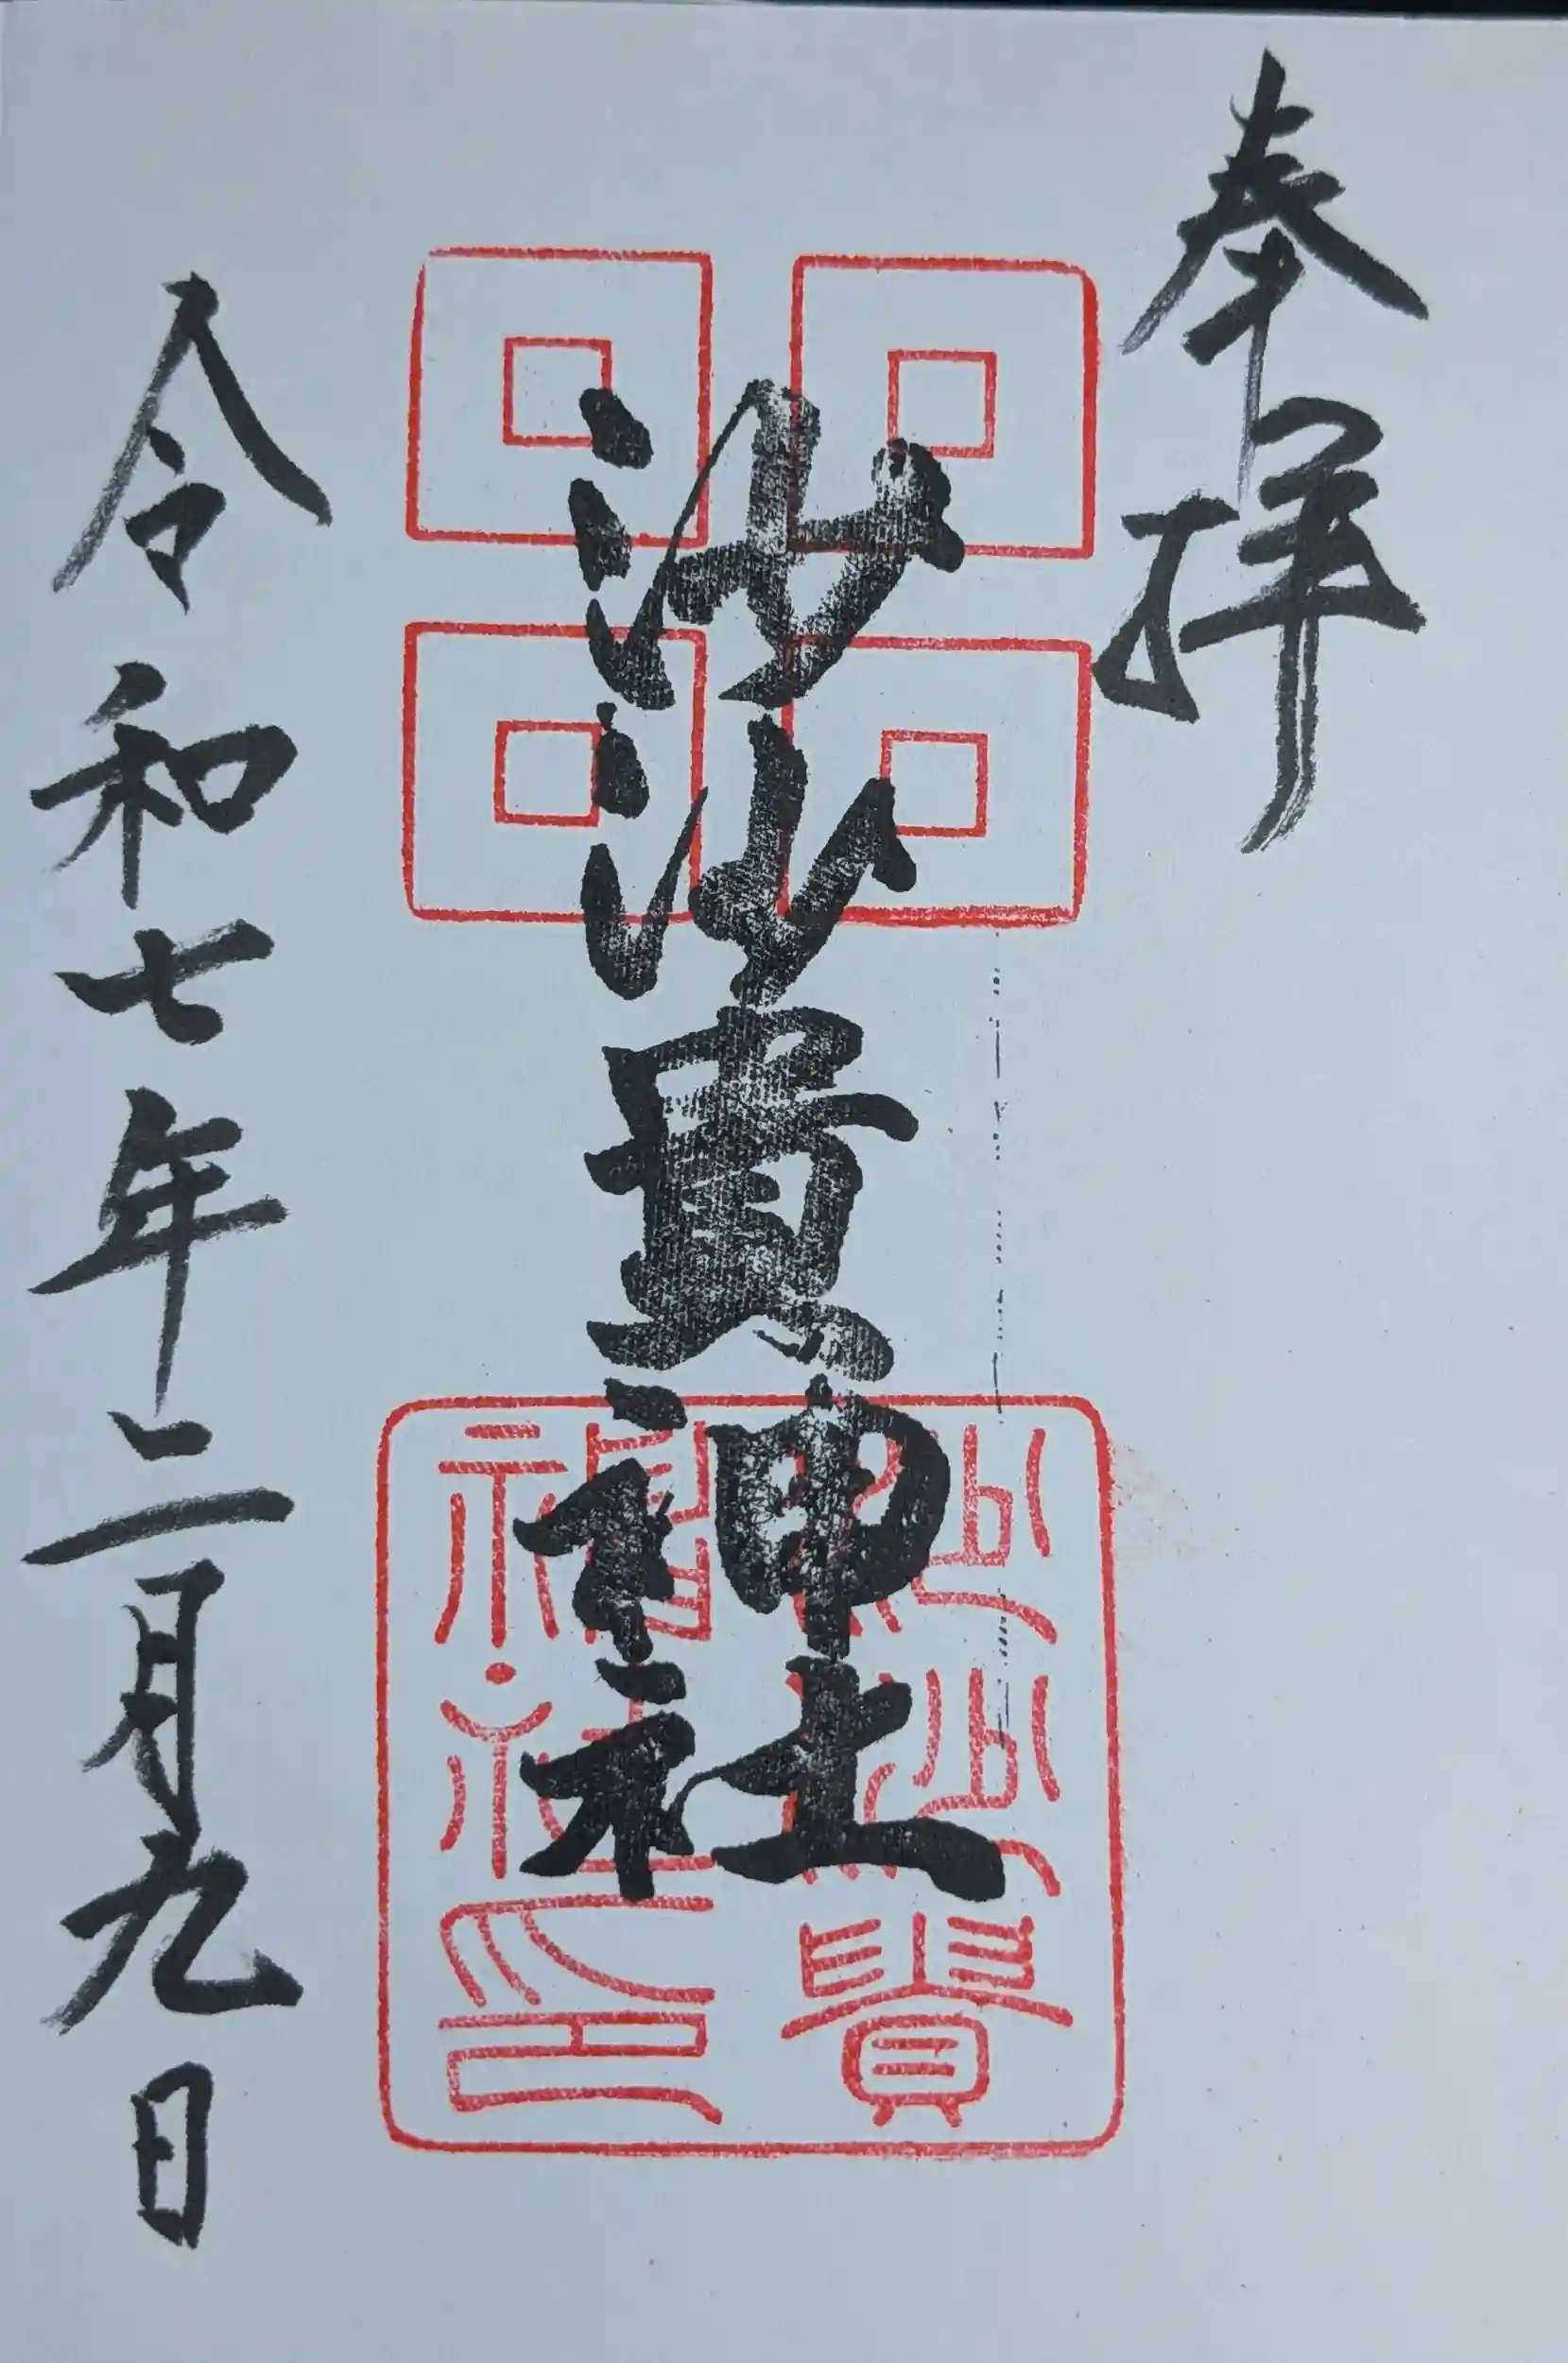 奉拝
沙沙貴神社
沙沙貴
神社印
令和七年二月九日